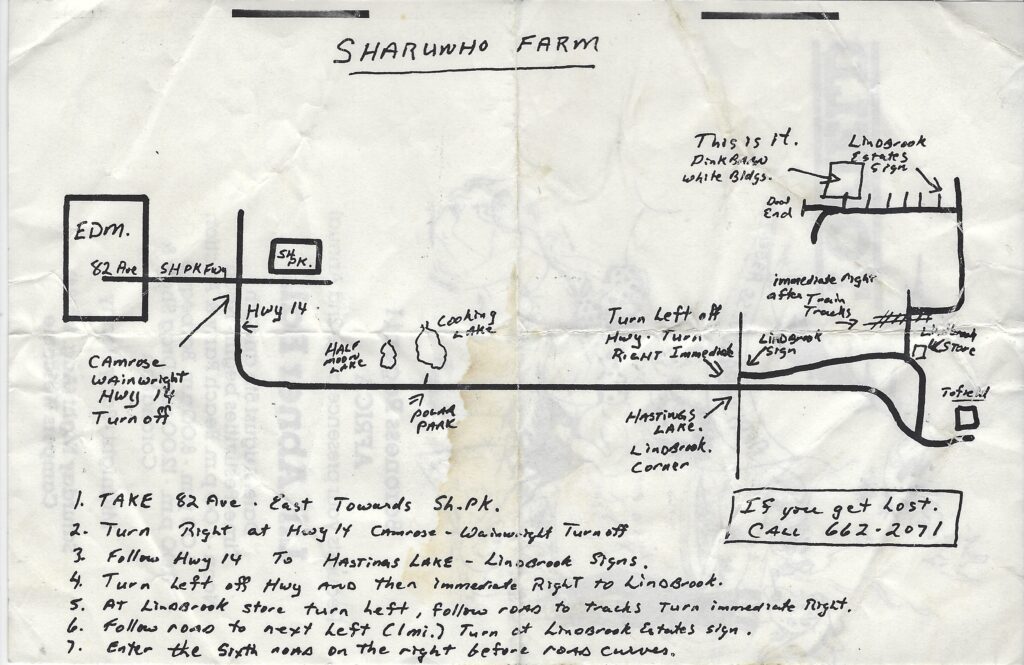 SHARUNHO FARM
This is it.
DinkBarn
White Bldgs.
LindBrook
Estates
Sign
Dead
End
EDM.
82 Ave
SH PK Fwy
SH.
PK.
Hwy 14
immediate Right
after Train
Tracks
LindBrook
Store
Turn Left off
Hwy. Turn
RIGHT Immediate
LINDBROOK
Sign
Cooking
LAKE
HALF
MOON
LAKE
CAMROSE
WAINWRIGHT
HWY 14
Turn off
POLAR
PARK
HASTINGS
LAKE.
LINDBROOK.
Corner
Tofield
1. TAKE 82 Ave. East Towards Sh.PK.
2. Turn Right at Hwy 14 Camrose - Wainwright Turnoff
3. Follow Hwy 14 To HASTINGS LAKE - LINDBROOK Signs.
4. Turn Left off Hwy AND then immediate Right to LINDBROOK.
5. At LINDBROOK store turn Left, follow road to tracks Turn immediate Right.
6. Follow road to next Left (1 mi.) Turn at LINDBROOK Estates sign.
7. Enter the Sixth road on the right before road curves.
If you get Lost.
CALL 662-2071